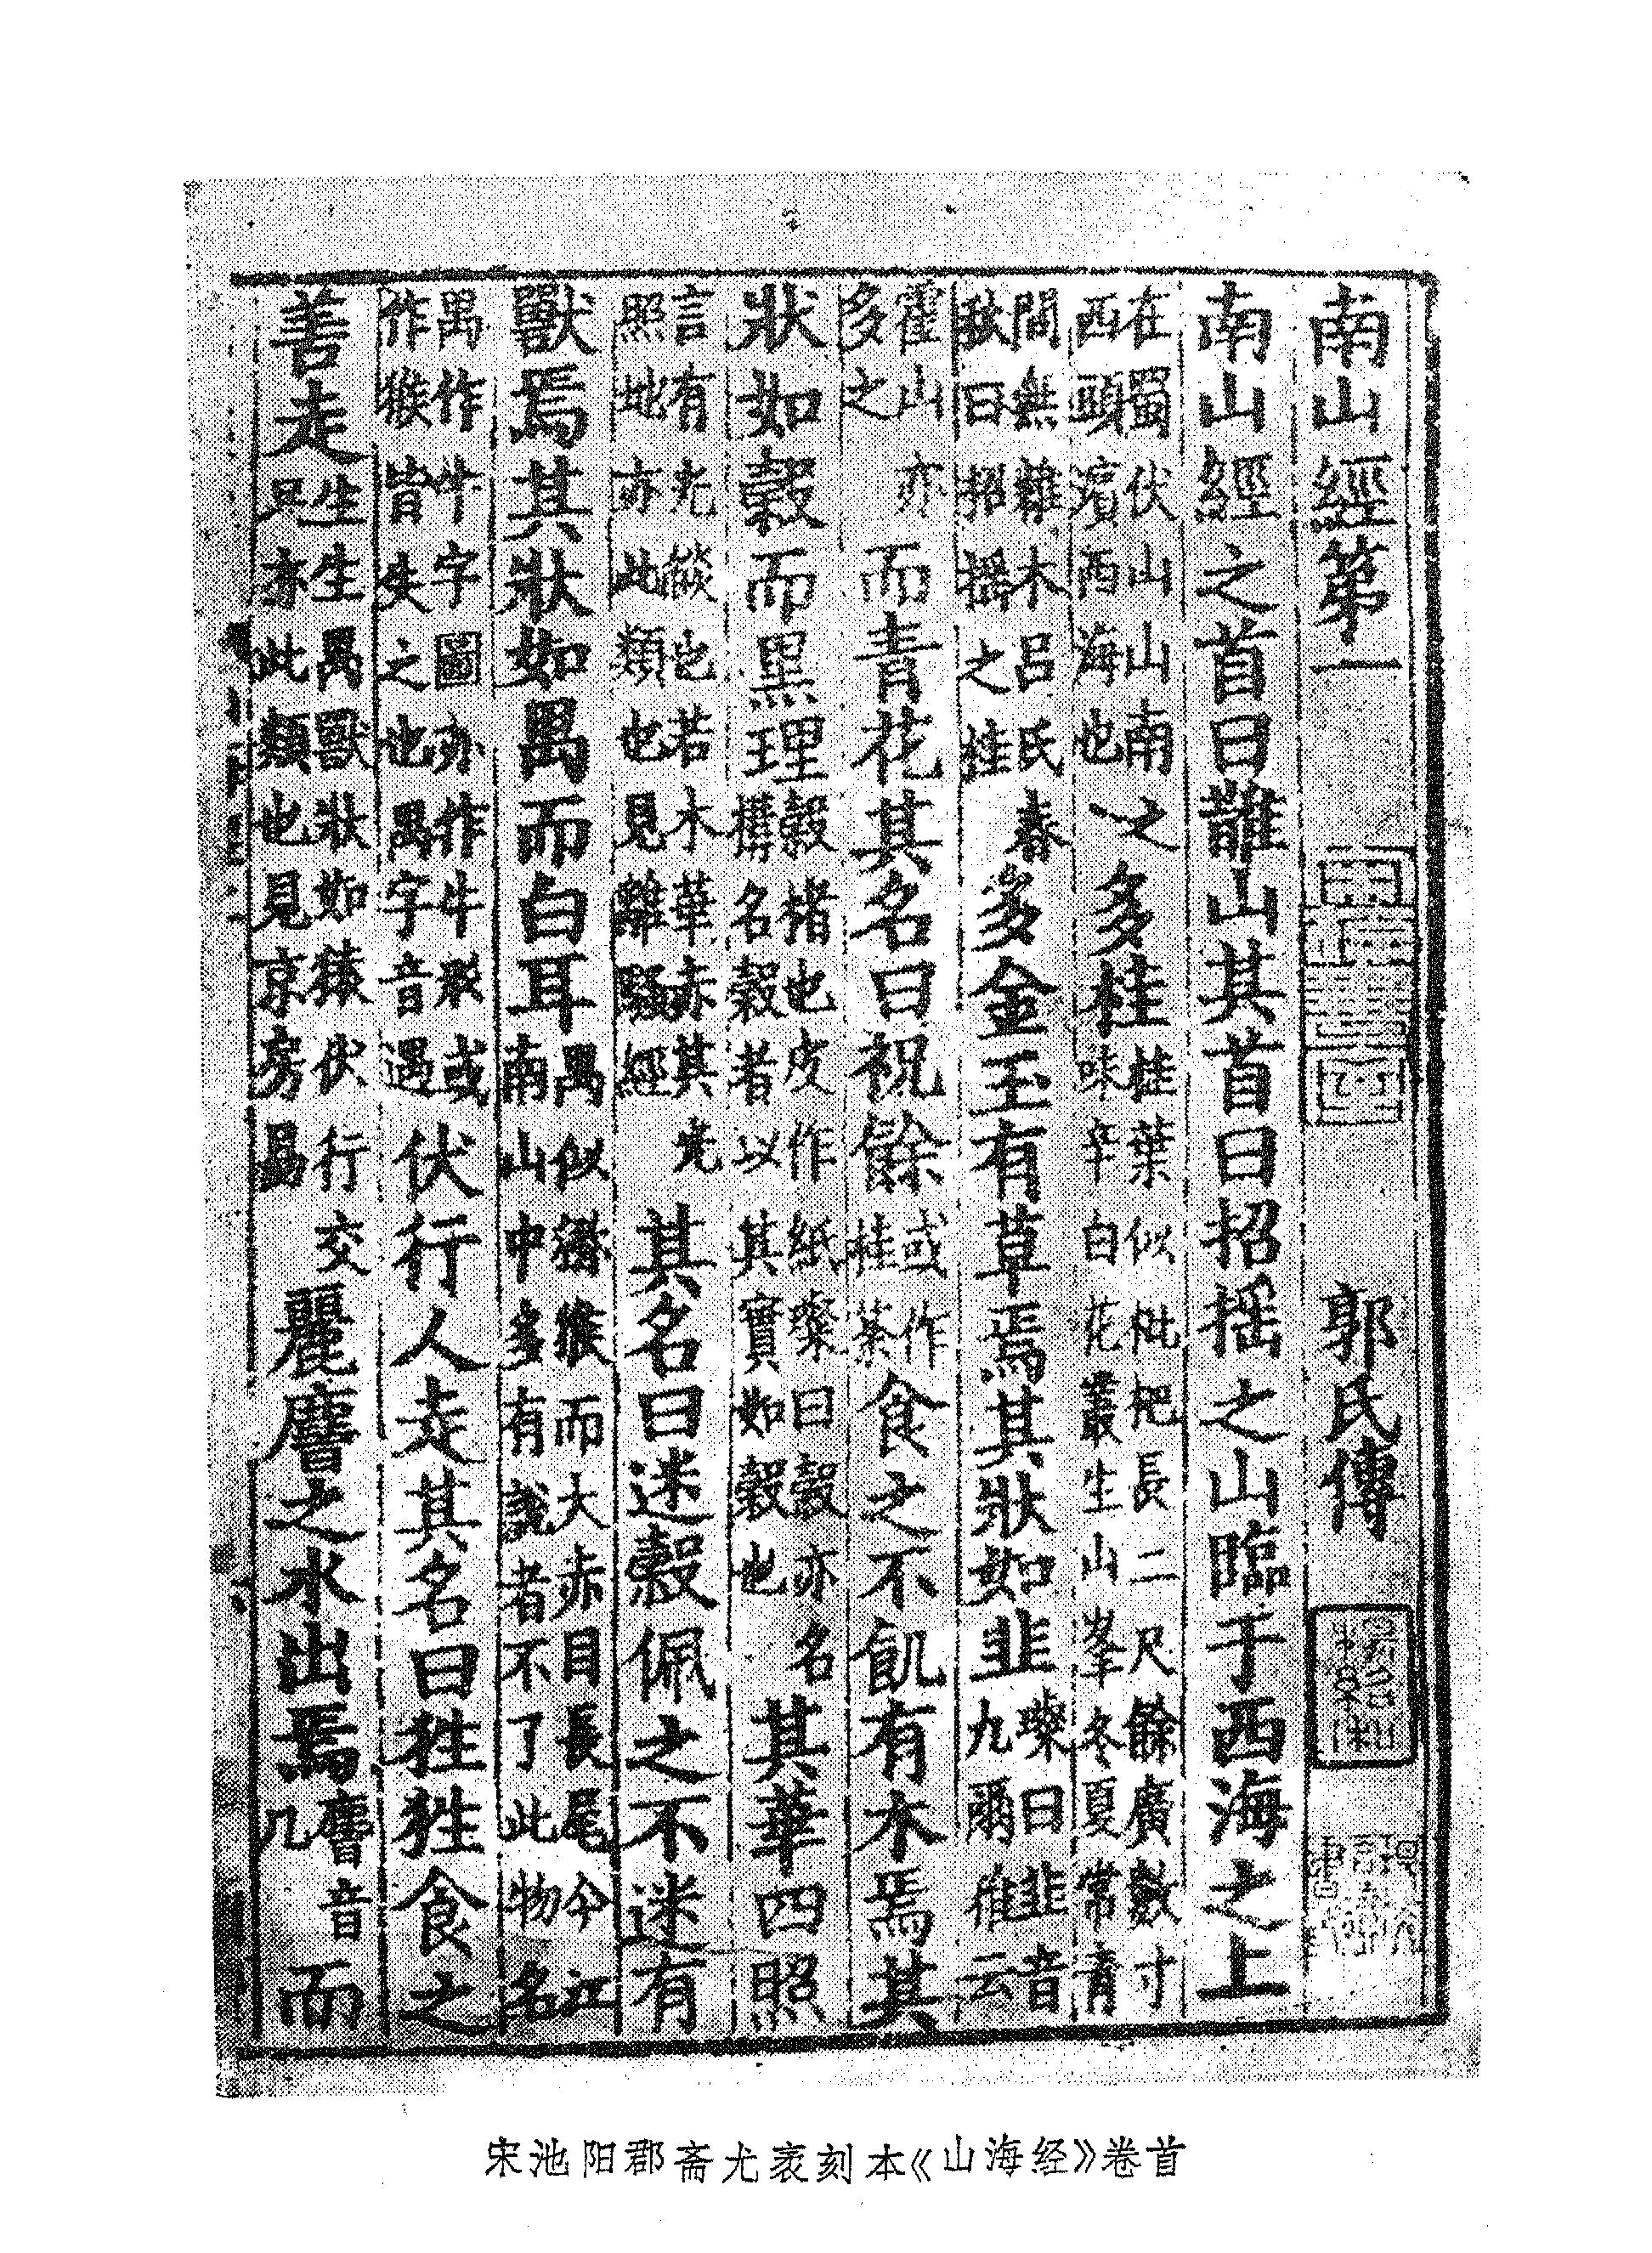 南山經第一 郭氏傳
南山經之首曰䧿山其首曰招搖之山臨于西海之上
在蜀伏山山南之西頭濱西海也多桂桂葉似枇杷長二尺餘廣數寸味辛白花叢生山峯冬夏常青
間無雜木呂氏春秋曰招搖之桂多金玉有草焉其狀如韭璨曰韭音九爾雅云
霍山亦多之而青花其名曰祝餘或作桂荼食之不飢有木焉其
狀如榖而黑理榖楮也皮作紙璨曰榖亦名構名榖者以其實如榖也其華四照
言有光燄也若木華赤其光照地亦此類也見離騷經其名曰迷榖佩之不迷有
獸焉其狀如禺而白耳禺似獼猴而大赤目長尾今江南山中多有說者不了此物名
禺作牛字圖亦作牛形或作猴皆失之也禺字音遇伏行人走其名曰狌狌食之
善走生生禺獸狀如猿伏行交足亦此類也見京房易麗𪊨之水出焉𪊨音几而
宋池阳郡斋尤袤刻本《山海经》卷首